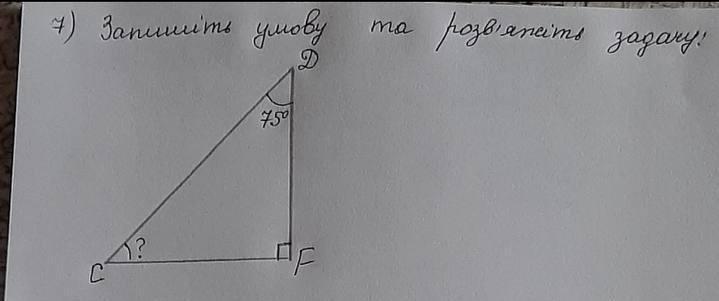 7) Запишіть умову та розв'яжіть задачу:
D
75°
?
C
F